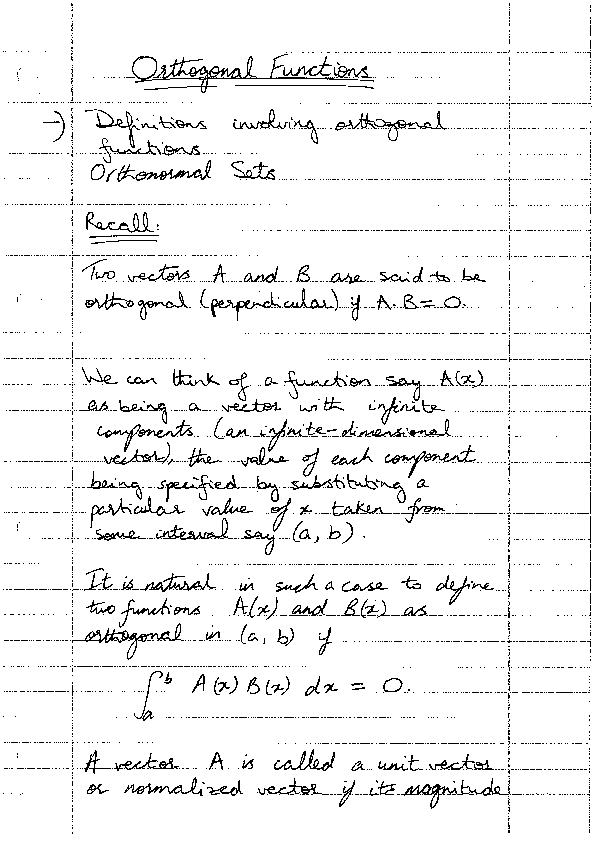 Orthogonal Functions
→) Definitions involving orthogonal
functions
Orthonormal Sets
Recall:
Two vectors A and B are said to be
orthogonal (perpendicular) if A.B = 0.
We can think of a function say A(x)
as being a vector with infinite
components (an infinite-dimensional
vector), the value of each component
being specified by substituting a
particular value of x taken from
some interval say (a, b).
It is natural in such a case to define
two functions A(x) and B(x) as
orthogonal in (a, b) if
∫ₐᵇ A(x) B(x) dx = 0.
A vector A is called a unit vector
or normalized vector if its magnitude